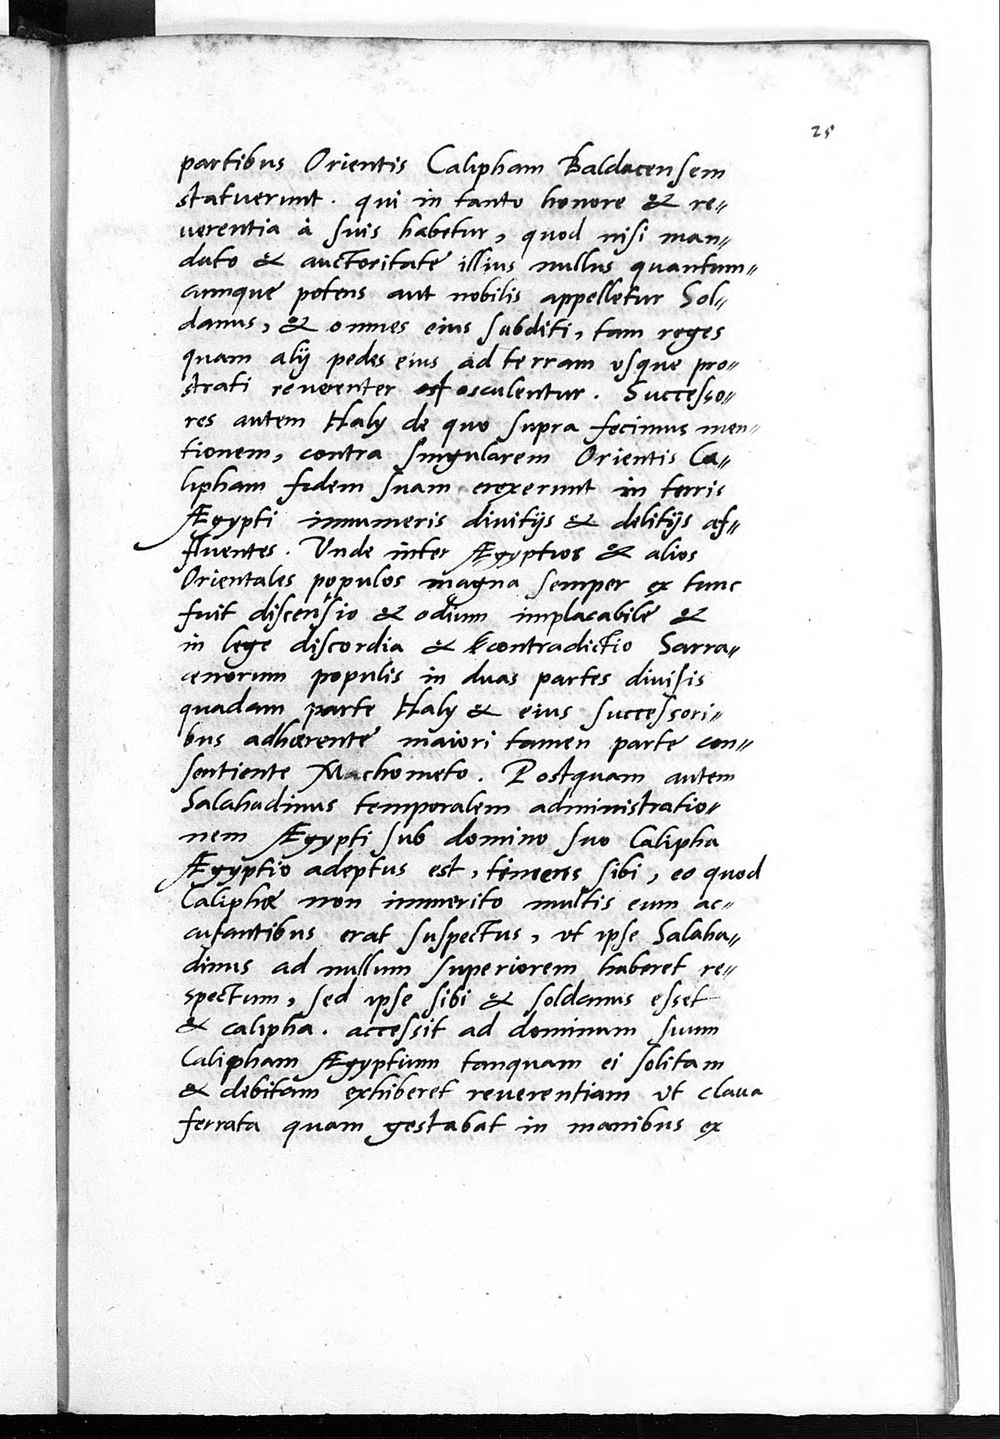 25
partibus Orientis Calipham Baldacensem
statuerunt. qui in tanto honore & re〃
uerentia à suis habetur, quod nisi man〃
dato & auctoritate illius nullus quantum〃
cunque potens aut nobilis appelletur Sol〃
danus, & omnes eius subditi, tam reges
quam alij pedes eius ad terram vsque pro〃
strati reuerenter osculentur. Successo〃
res autem Haly de quo supra fecimus men〃
tionem, contra singularem Orientis Ca〃
lipham sedem suam erexerunt in terris
Ægypti innumeris diuitijs & delitijs af〃
fluentes. Vnde inter Ægyptios & alios
Orientales populos magna semper ex tunc
fuit discensio & odium implacabile &
in lege discordia & contradictio Sarra〃
cenorum populis in duas partes diuisis
quadam parte Haly & eius successori〃
bus adhærente maiori tamen parte con〃
sentiente Machometo. Postquam autem
Salahadinus temporalem administratio〃
nem Ægypti sub domino suo Calipha
Ægyptio adeptus est, timens sibi, eo quod
Caliphæ non immerito multis eum ac〃
cusantibus erat suspectus, vt ipse Salaha〃
dinus ad nullum superiorem haberet re〃
spectum, sed ipse sibi & soldanus esset
& calipha. accessit ad dominum suum
Calipham Ægyptium tanquam ei solitam
& debitam exhiberet reuerentiam vt claua
ferrata quam gestabat in manibus ex